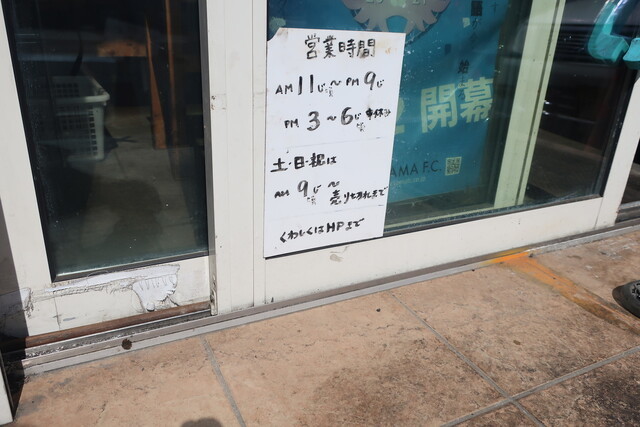 営業時間
AM 11じ頃〜 PM 9じ
PM 3〜6じ頃 中休み
土・日・祝は
AM 9じ頃〜 売り切れまで
くわしくはHPまで
開幕
AMA F.C